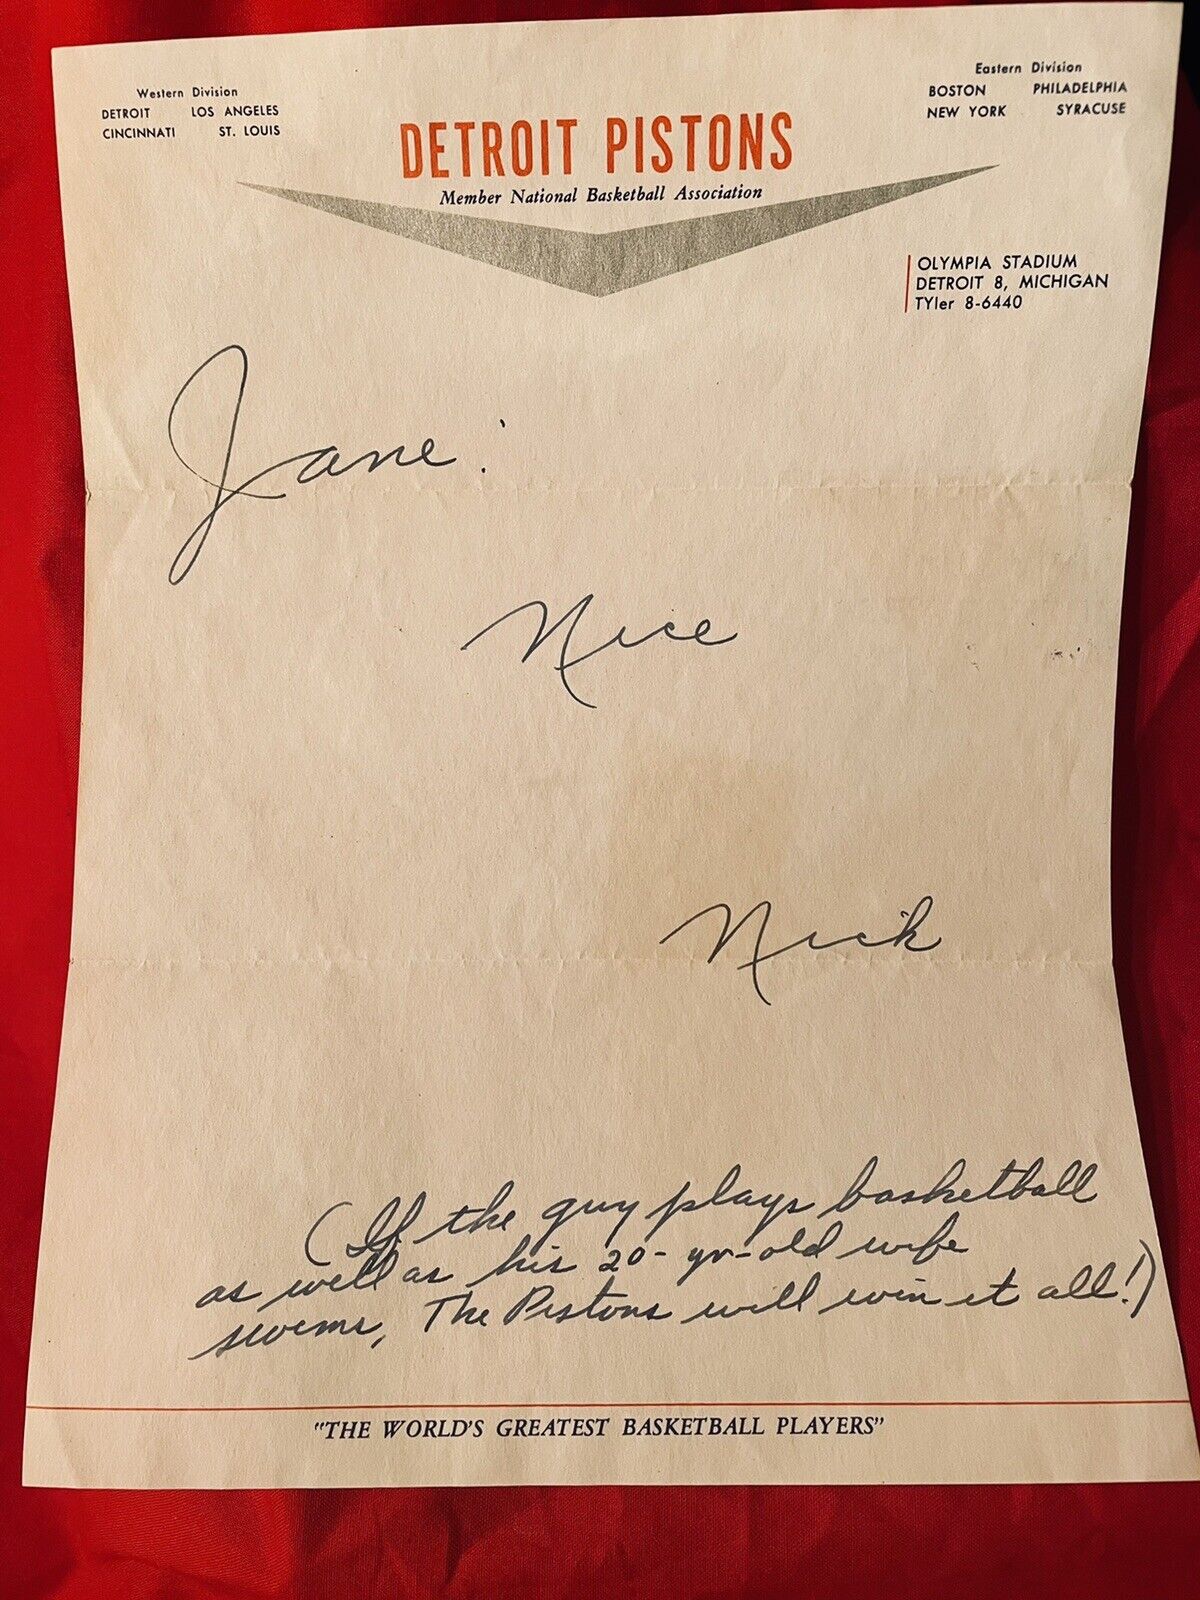 Western Division
DETROIT LOS ANGELES
CINCINNATI ST. LOUIS
Eastern Division
BOSTON PHILADELPHIA
NEW YORK SYRACUSE
DETROIT PISTONS
Member National Basketball Association
OLYMPIA STADIUM
DETROIT 8, MICHIGAN
TYler 8-6440
Jane:
Nice
Nick
(If the guy plays basketball
as well as his 20-yr-old wife
swims, The Pistons will win it all!)
"THE WORLD'S GREATEST BASKETBALL PLAYERS"